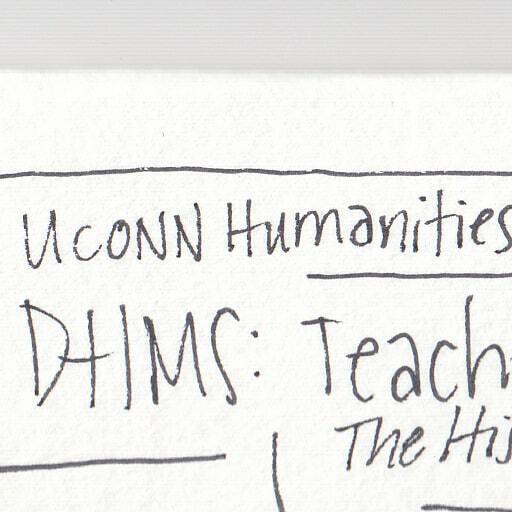 UCONN Humanities
DHMS: Teach
The His